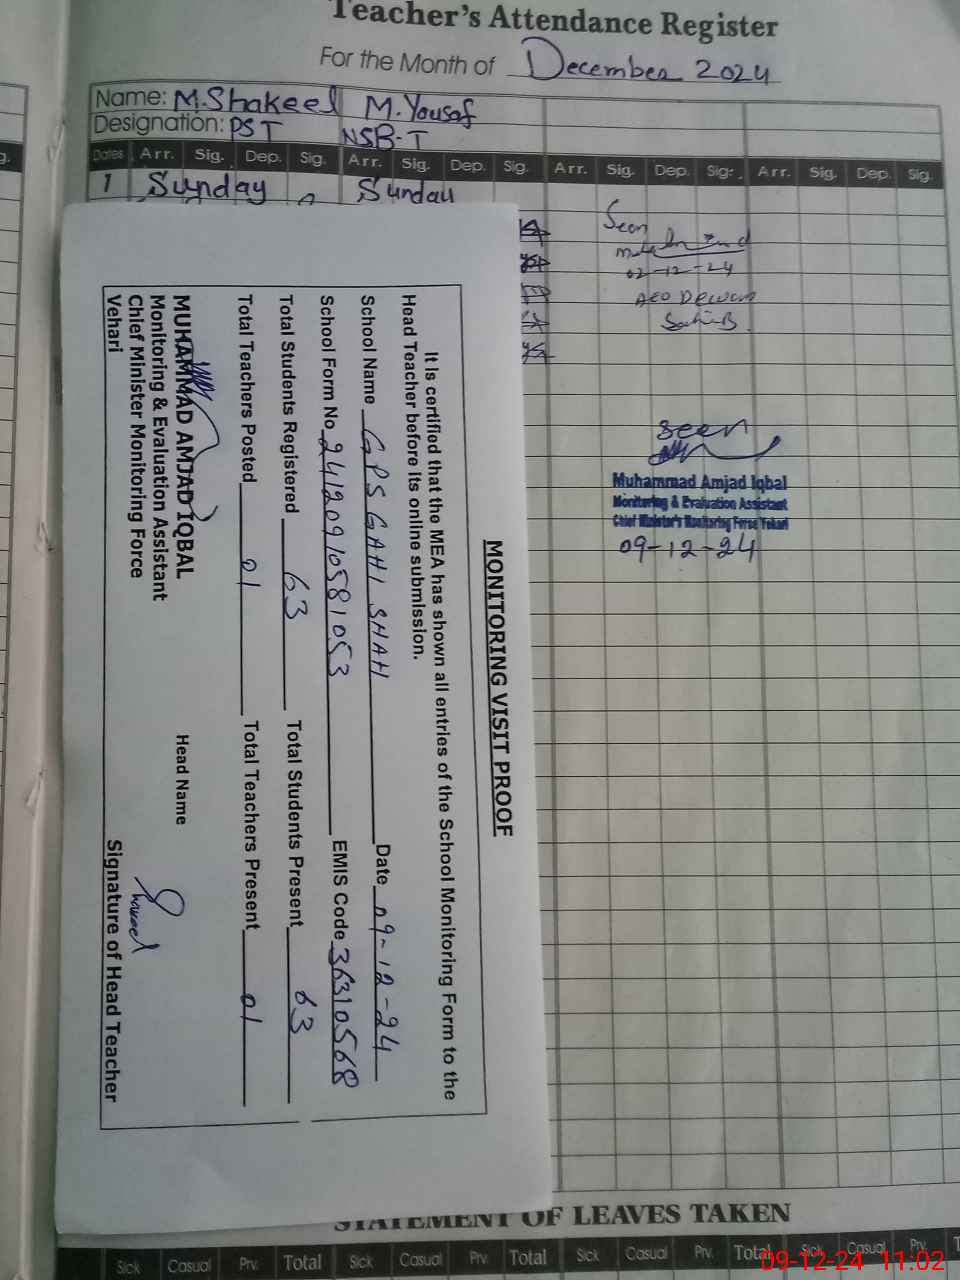 Teacher's Attendance Register
For the Month of December 2024
Name: M.Shakeel M.Yousaf
Designation: PST NSB-T
Dates Arr. Sig. Dep. Sig. Arr. Sig. Dep. Sig. Arr. Sig. Dep. Sig. Arr. Sig. Dep. Sig.
1 Sunday Sunday
Seen
02-12-24
AEO Dewan
Sahib
Seen
Muhammad Amjad Iqbal
Monitoring & Evaluation Assistant
Chief Minister's Monitoring Force Vehari
09-12-24
MONITORING VISIT PROOF
It is certified that the MEA has shown all entries of the School Monitoring Form to the
Head Teacher before its online submission.
School Name GPS GAHI SHAH Date 09-12-24
School Form No 24120910581053 EMIS Code 36310568
Total Students Registered 63 Total Students Present 63
Total Teachers Posted 01 Total Teachers Present 01
MUHAMMAD AMJAD IQBAL Head Name
Monitoring & Evaluation Assistant
Chief Minister Monitoring Force Shakeel
Vehari Signature of Head Teacher
STATEMENT OF LEAVES TAKEN
Sick Casual Prv. Total Sick Casual Prv. Total Sick Casual Prv. Total Sick Casual Prv.
09-12-24 11:02